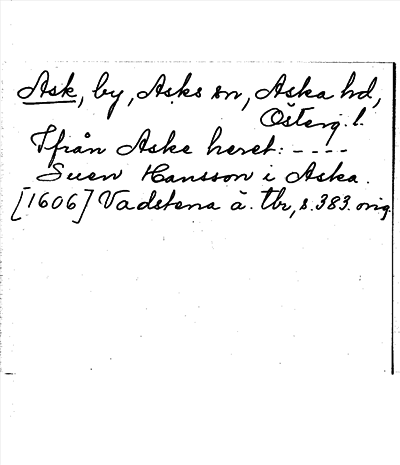 Ask, by, Asks sn, Aska hd,
Österg. l.
Ifrån Aske heret: ----
Suen Hansson i Aska.
[1606] Vadstena ä. tbr, s. 383. orig.